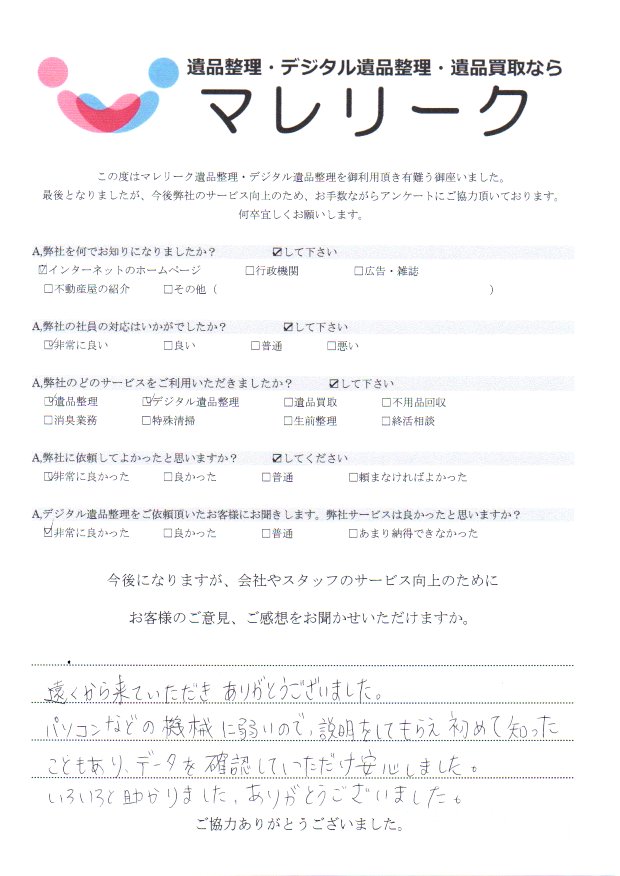 遺品整理・デジタル遺品整理・遺品買取なら
マレリーク
この度はマレリーク遺品整理・デジタル遺品整理を御利用頂き有難う御座いました。
最後となりましたが、今後弊社のサービス向上のため、お手数ながらアンケートにご協力頂いております。
何卒宜しくお願いします。
A,弊社を何でお知りになりましたか? ☑して下さい
☑インターネットのホームページ □行政機関 □広告・雑誌
□不動産屋の紹介 □その他( )
A,弊社の社員の対応はいかがでしたか? ☑して下さい
☑非常に良い □良い □普通 □悪い
A,弊社のどのサービスをご利用いただきましたか? ☑して下さい
☑遺品整理 ☑デジタル遺品整理 □遺品買取 □不用品回収
□消臭業務 □特殊清掃 □生前整理 □終活相談
A,弊社に依頼してよかったと思いますか? ☑してください
☑非常に良かった □良かった □普通 □頼まなければよかった
A,デジタル遺品整理をご依頼頂いたお客様にお聞きします。弊社サービスは良かったと思いますか?
☑非常に良かった □良かった □普通 □あまり納得できなかった
今後になりますが、会社やスタッフのサービス向上のために
お客様のご意見、ご感想をお聞かせいただけますか。
遠くから来ていただき ありがとうございました。
パソコンなどの機械に弱いので、説明をしてもらえ初めて知った
こともあり、データを確認していただけ安心しました。
いろいろと助かりました、ありがとうございました。
ご協力ありがとうございました。